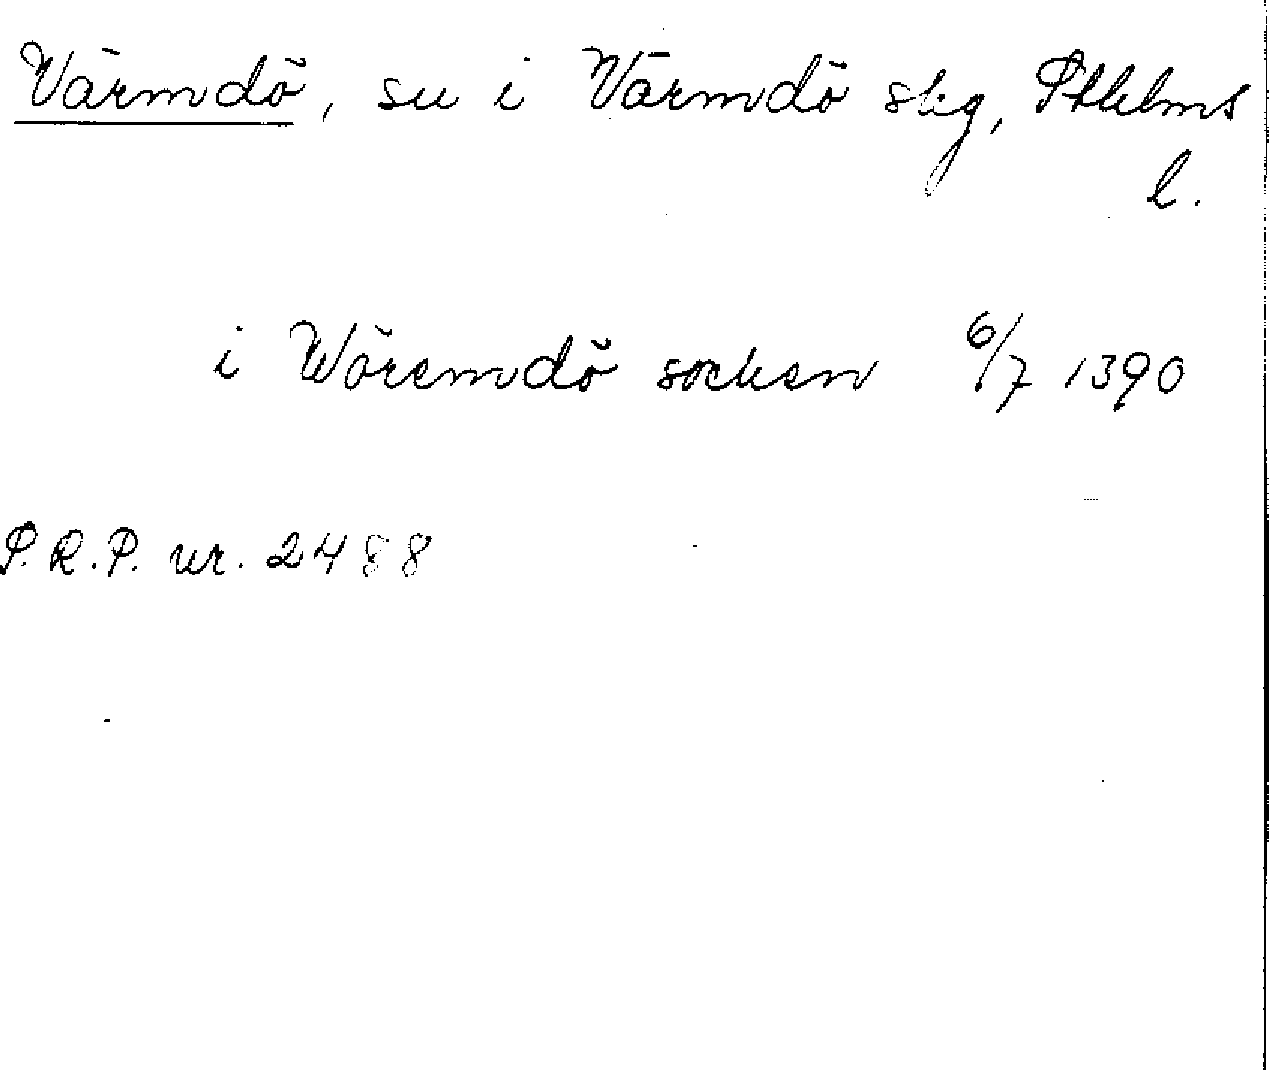 Värmdö, sn i Värmdö skg, Sthlms
l.
i Wöremdö socken 6/7 1390
S.R.P. nr. 2488